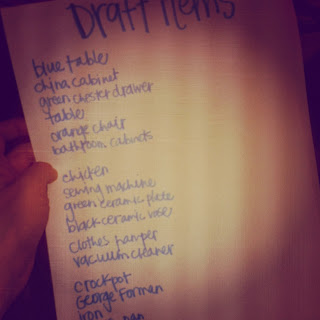 Draft Items
blue table
china cabinet
green chister drawer
table
orange chair
bathroom cabinets
chicken
sewing machine
green ceramic plate
black ceramic vase
clothes hamper
vaccum cleaner
crockpot
George Forman
iron